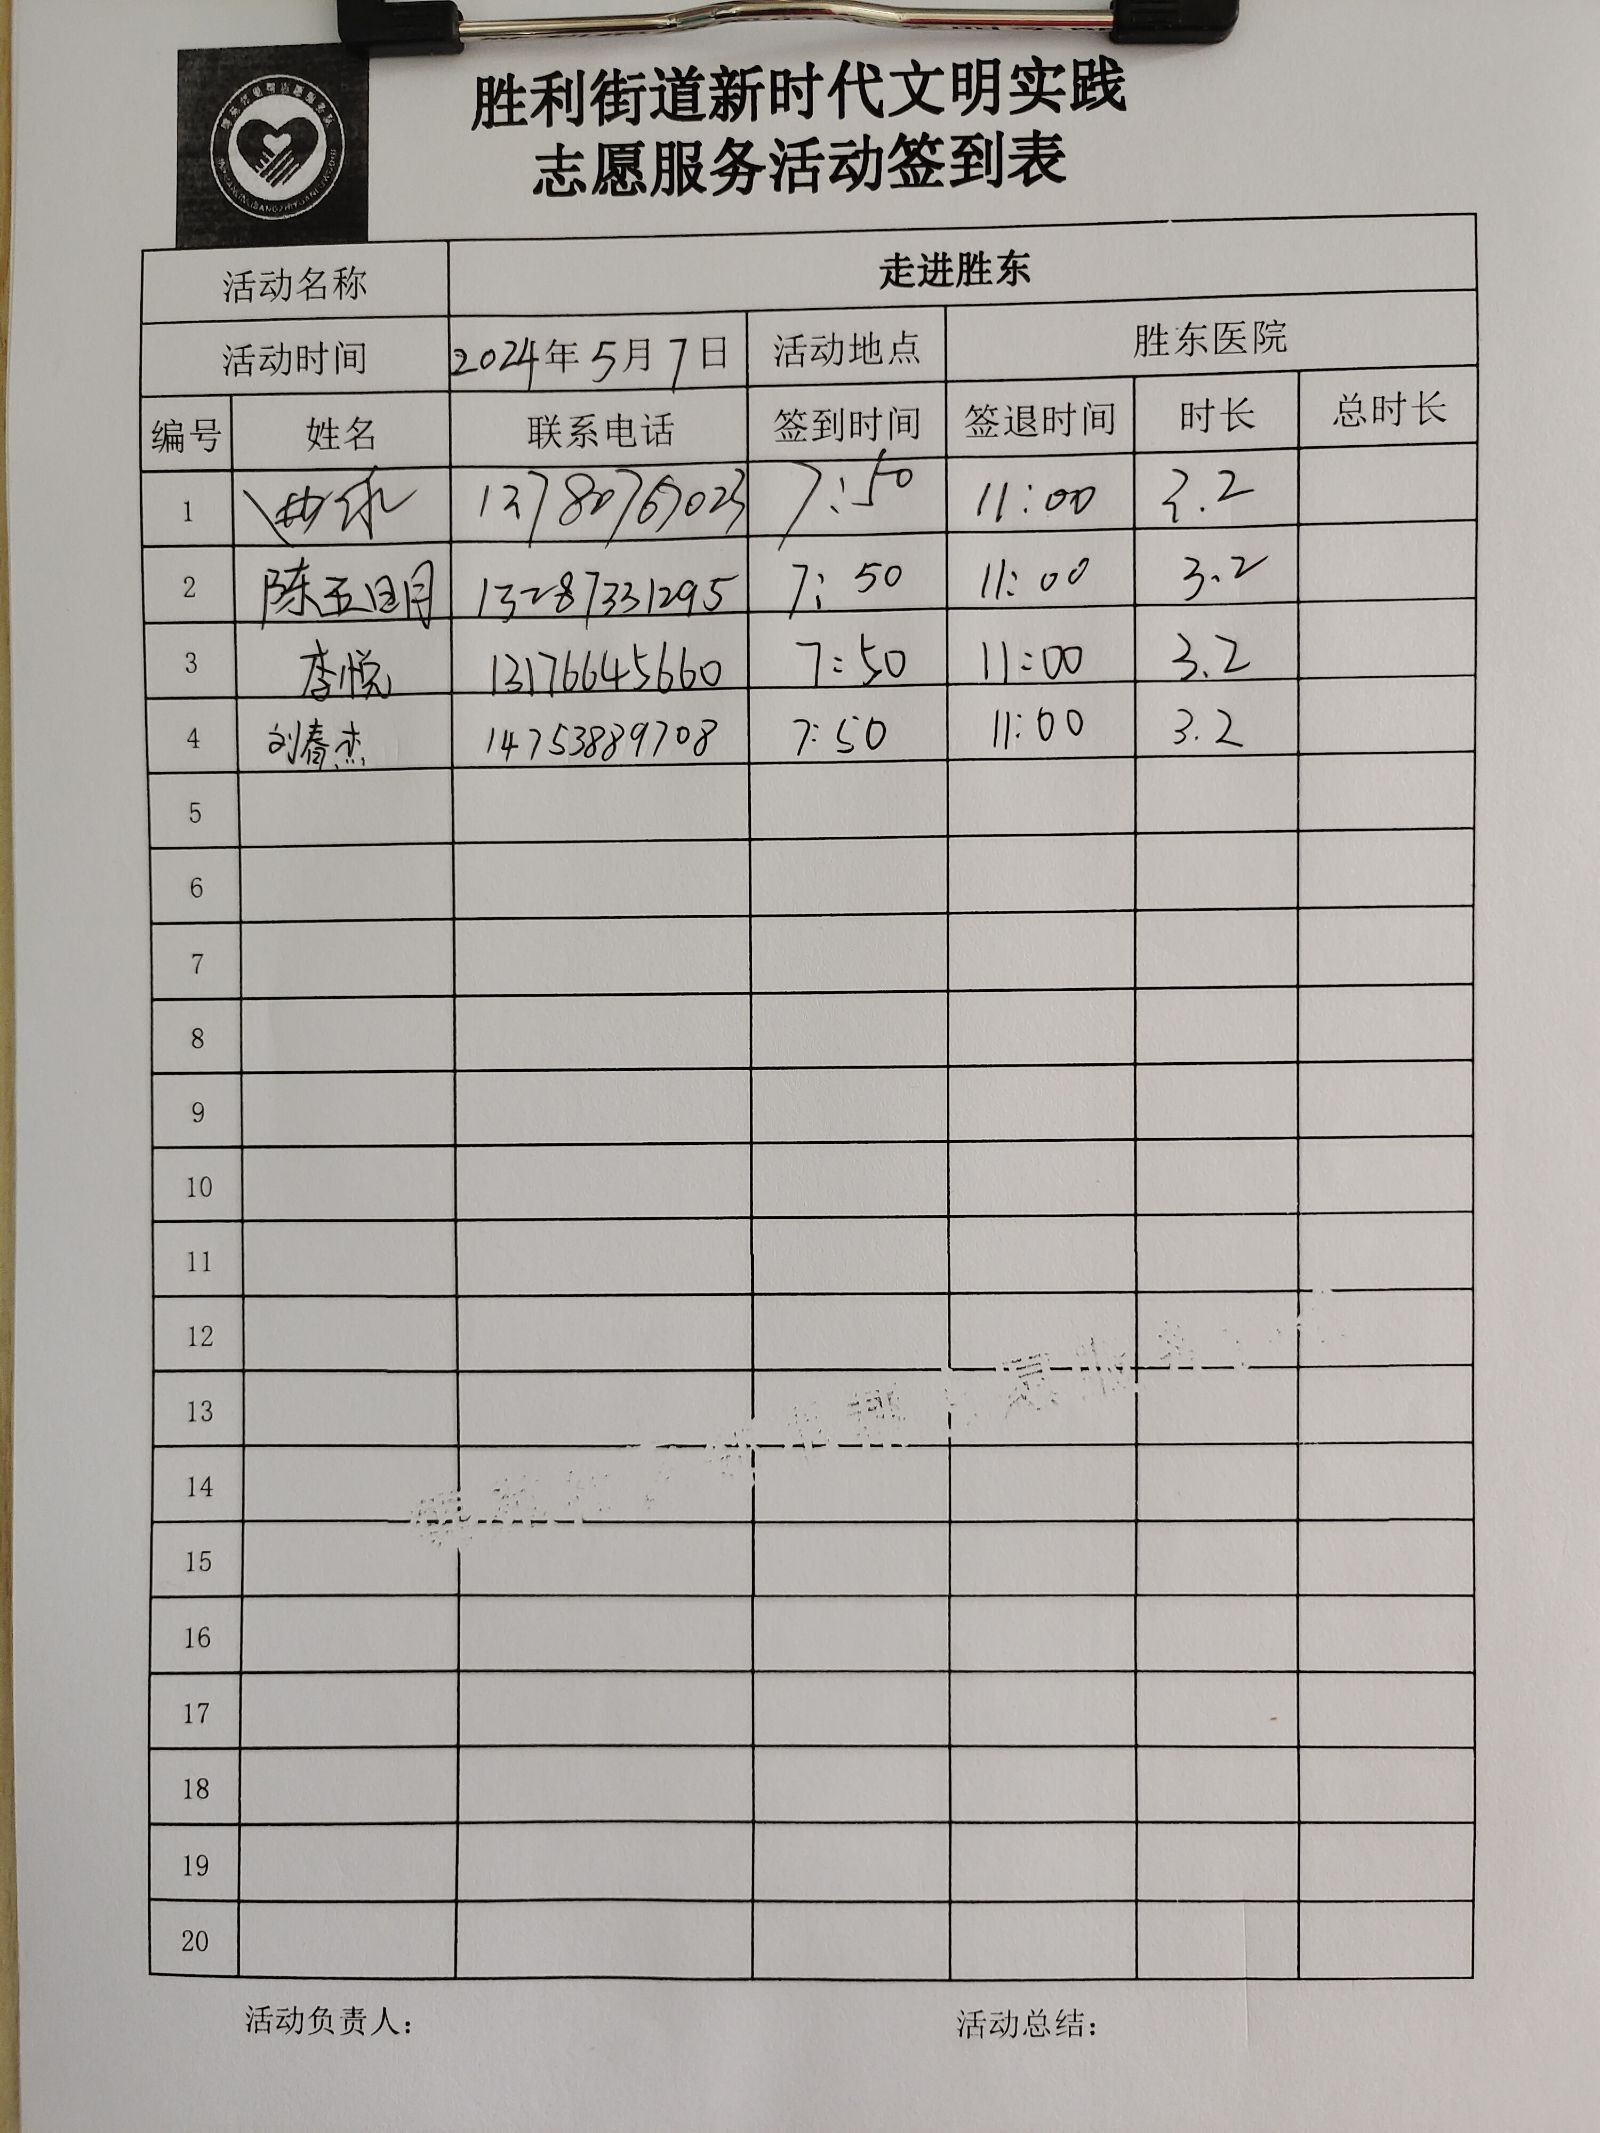 胜利街道新时代文明实践
志愿服务活动签到表
活动名称 走进胜东
活动时间 2024年5月7日 活动地点 胜东医院
编号 姓名 联系电话 签到时间 签退时间 时长 总时长
1 13780769023 7:50 11:00 3.2
2 陈玉明 13287331295 7:50 11:00 3.2
3 李悦 13176645660 7:50 11:00 3.2
4 刘春杰 14753889708 7:50 11:00 3.2
5
6
7
8
9
10
11
12
13
14
15
16
17
18
19
20
活动负责人： 活动总结：